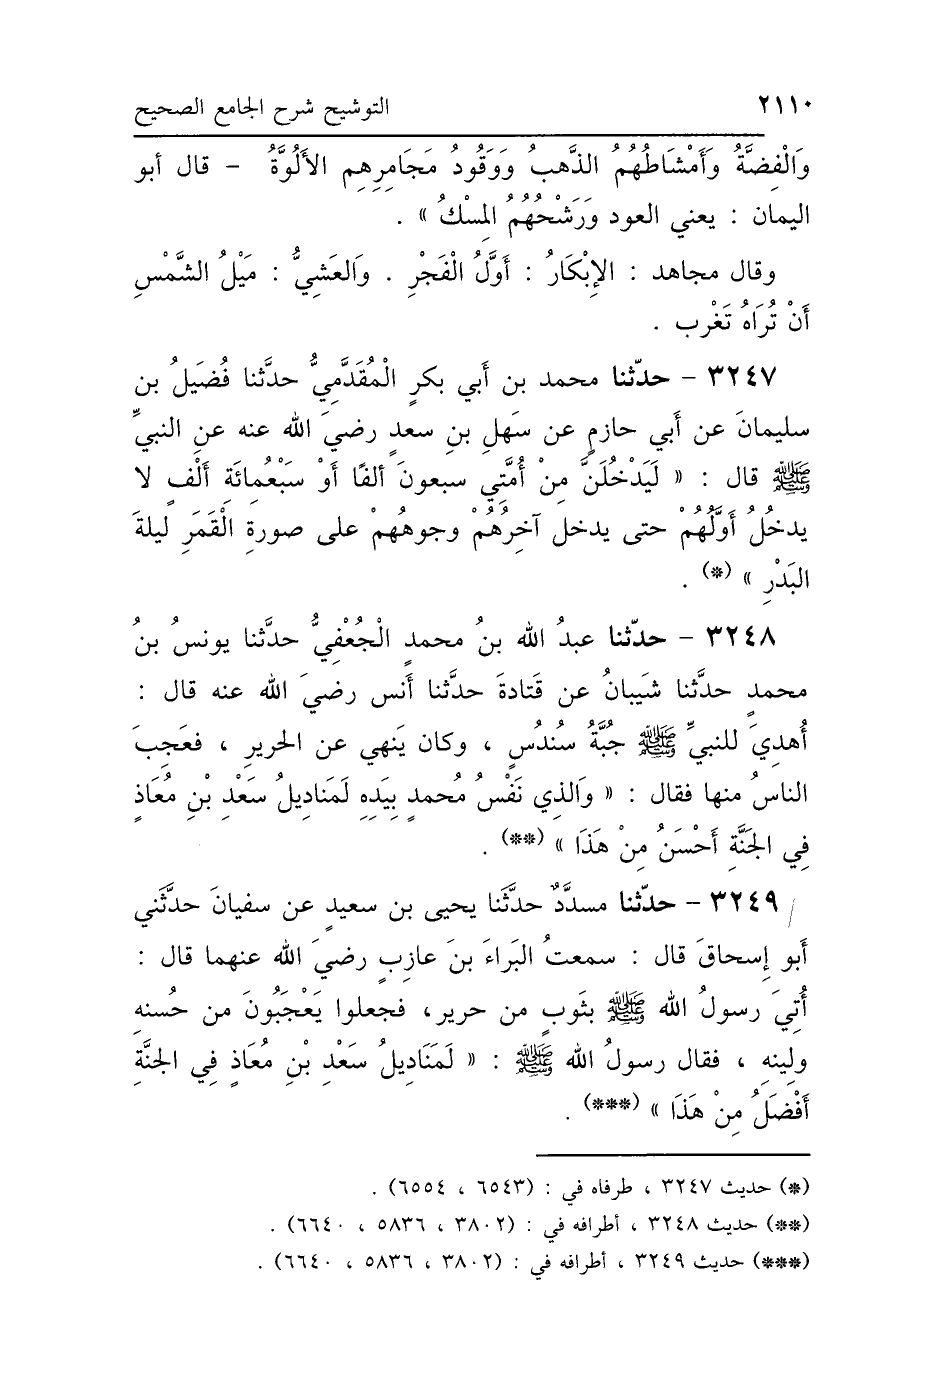 ٢١١٠
التوشيح شرح الجامع الصحيح
وَالْفِضَّةُ وَأَمْشَاطُهُمُ الذَّهبُ وَوَقُودُ مَجَامِرِهِم الأَلُوَّةُ – قال أبو
اليمان : يعني العود وَرَشْحُهُمُ المِسْكُ » .
وقال مجاهد : الإِبْكَارُ : أَوَّلُ الْفَجْرِ . وَالعَشِيُّ : مَيْلُ الشَّمْسِ
أَنْ تُرَاهُ تَغْرب .
٣٢٤٧ – حدّثنا محمد بن أَبي بكرٍ الْمُقَدَّمِيُّ حدَّثنا فُضَيلُ بن
سليمانَ عن أَبي حازمٍ عن سَهلِ بنِ سعدٍ رضيَ الله عنه عنِ النبيِّ
ﷺ قال : « لَيَدْخُلَنَّ مِنْ أُمَّتِي سبعونَ ألفًا أَوْ سَبْعُمِائَةِ أَلْفٍ لا
يدخُلُ أَوَّلُهُمْ حتى يدخل آخِرُهُمْ وجوهُهُمْ على صورةِ الْقَمَرِ ليلةَ
البَدْرِ » (*) .
٣٢٤٨ – حدّثنا عبدُ الله بنُ محمدٍ الْجُعْفِيُّ حدَّثنا يونسُ بنُ
محمدٍ حدَّثنا شَيبانُ عن قَتادةَ حدَّثنا أَنس رضيَ الله عنه قال :
أُهدِيَ للنبيِّ ﷺ جُبَّةُ سُندُسٍ ، وكان يَنهي عن الحَريرِ ، فعَجِبَ
الناسُ منها فقال : « وَالذي نَفْسُ مُحمدٍ بِيَدِهِ لَمَناديلُ سَعْدِ بْنِ مُعَاذٍ
فِي الجَنَّةِ أَحْسَنُ مِنْ هَذَا » (**) .
٣٢٤٩ – حدّثنا مسدَّدٌ حدَّثَنا يحيى بن سعيدٍ عن سفيانَ حدَّثَني
أَبو إِسحاقَ قال : سمعتُ البَراءَ بنَ عازبٍ رضيَ الله عنهما قال :
أُتِيَ رسولُ الله ﷺ بثَوبٍ من حرير، فجعلوا يَعْجَبُونَ من حُسنهِ
ولِينهِ ، فقال رسولُ الله ﷺ : « لَمَنَادِيلُ سَعْدِ بْنِ مُعَاذٍ فِي الجنَّةِ
أَفْضَلُ مِنْ هَذَا » (***) .
(*) حديث ٣٢٤٧ ، طرفاه في : (٦٥٤٣ ، ٦٥٥٤) .
(**) حديث ٣٢٤٨ ، أطرافه في : (٣٨٠٢ ، ٥٨٣٦ ، ٦٦٤٠) .
(***) حديث ٣٢٤٩ ، أطرافه في : (٣٨٠٢ ، ٥٨٣٦ ، ٦٦٤٠) .